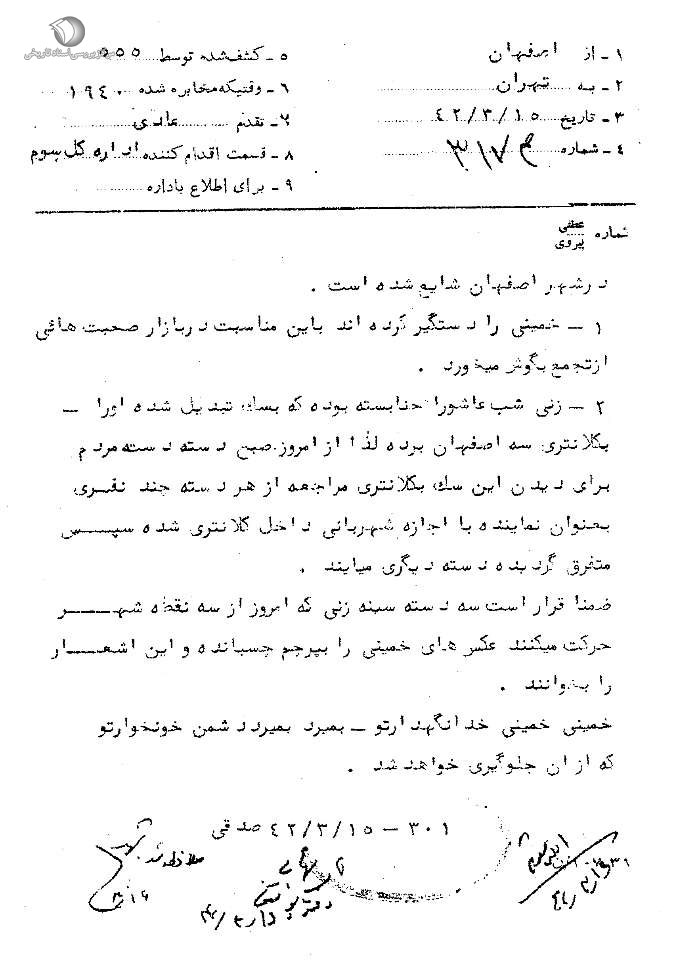 مرکز بررسی اسناد تاریخی
۱ - از اصفهان
۲ - به تهران
۳ - تاریخ ۴۲/۳/۱۵
۴ - شماره ۳۱۷ م
۵ - کشف شده توسط ۵۵۵
۶ - وقتیکه مخابره شده ۱۹۴۰
۷ - تقدم عادی
۸ - قسمت اقدام کننده اداره کل سوم
۹ - برای اطلاع باداره
شماره عطفی پیروی
درشهر اصفهان شایع شده است .
۱ - خمینی را دستگیر کرده اند باین مناسبت دربازار صحبت هائی
ازتجمع بگوش میخورد .
۲ - زنی شب عاشورا حنابسته بوده که بسك تبدیل شده اورا -
بکلانتری سه اصفهان برده لذا از امروز صبح دسته دسته مردم
برای دیدن این سك بکلانتری مراجعه از هر دسته چند نفری
بعنوان نماینده با اجازه شهربانی داخل کلانتری شده سپس
متفرق گردیده دسته دیگری میایند .
ضمنا قرار است سه دسته سینه زنی که امروز از سه نقطه شهر
حرکت میکنند عکس های خمینی را بپرچم چسبانده و این اشعار
را بخوانند .
خمینی خمینی خدانگهدارتو - بمیرد بمیرد دشمن خونخوارتو
که از ان جلوگیری خواهد شد .
۳۰۱ - ۴۲/۳/۱۵ صدقی
ملاحظه شد
۳/۱۶